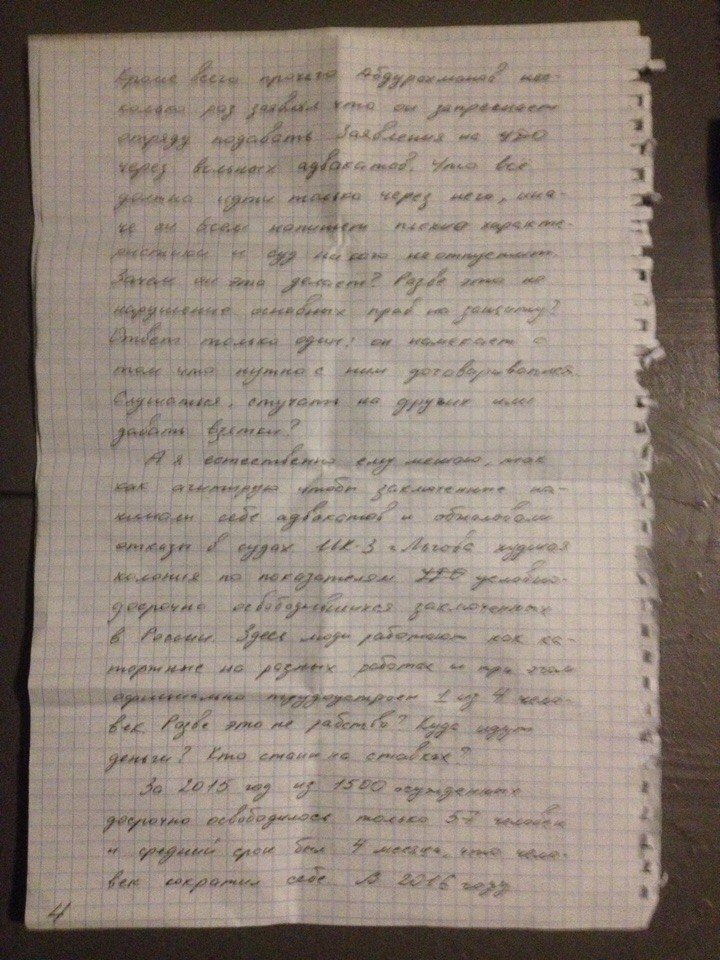 Кроме всего прочего Абдурахманов нес-
колько раз заявлял что он запрещает
отряду подавать заявления на УДО
через вольных адвокатов. Что всё
должно идти только через него, ина-
че он всем напишет плохие характе-
ристики и суд никого не отпустит.
Зачем он это делает? Разве это не
нарушение основных прав на защиту?
Ответ только один: он намекает о
том что нужно с ним договариваться.
Слушаться, стучать на других или
давать взятки?
А я естественно ему мешаю, так
как агитирую чтобы заключенные на-
нимали себе адвокатов и обжаловали
отказы в судах. ИК-3 г. Льгова худшая
колония по показателям УДО условно-
досрочно освободившихся заключенных
в России. Здесь люди работают как ка-
торжные на разных работах и при этом
официально трудоустроен 1 из 4 чело-
век. Разве это не рабство? Куда идут
деньги? Кто стоит на ставках?
За 2015 год из 1500 осужденных
досрочно освободилось только 57 человек
и средний срок был 4 месяца, что чело-
век сократил себе. В 2016 году
4